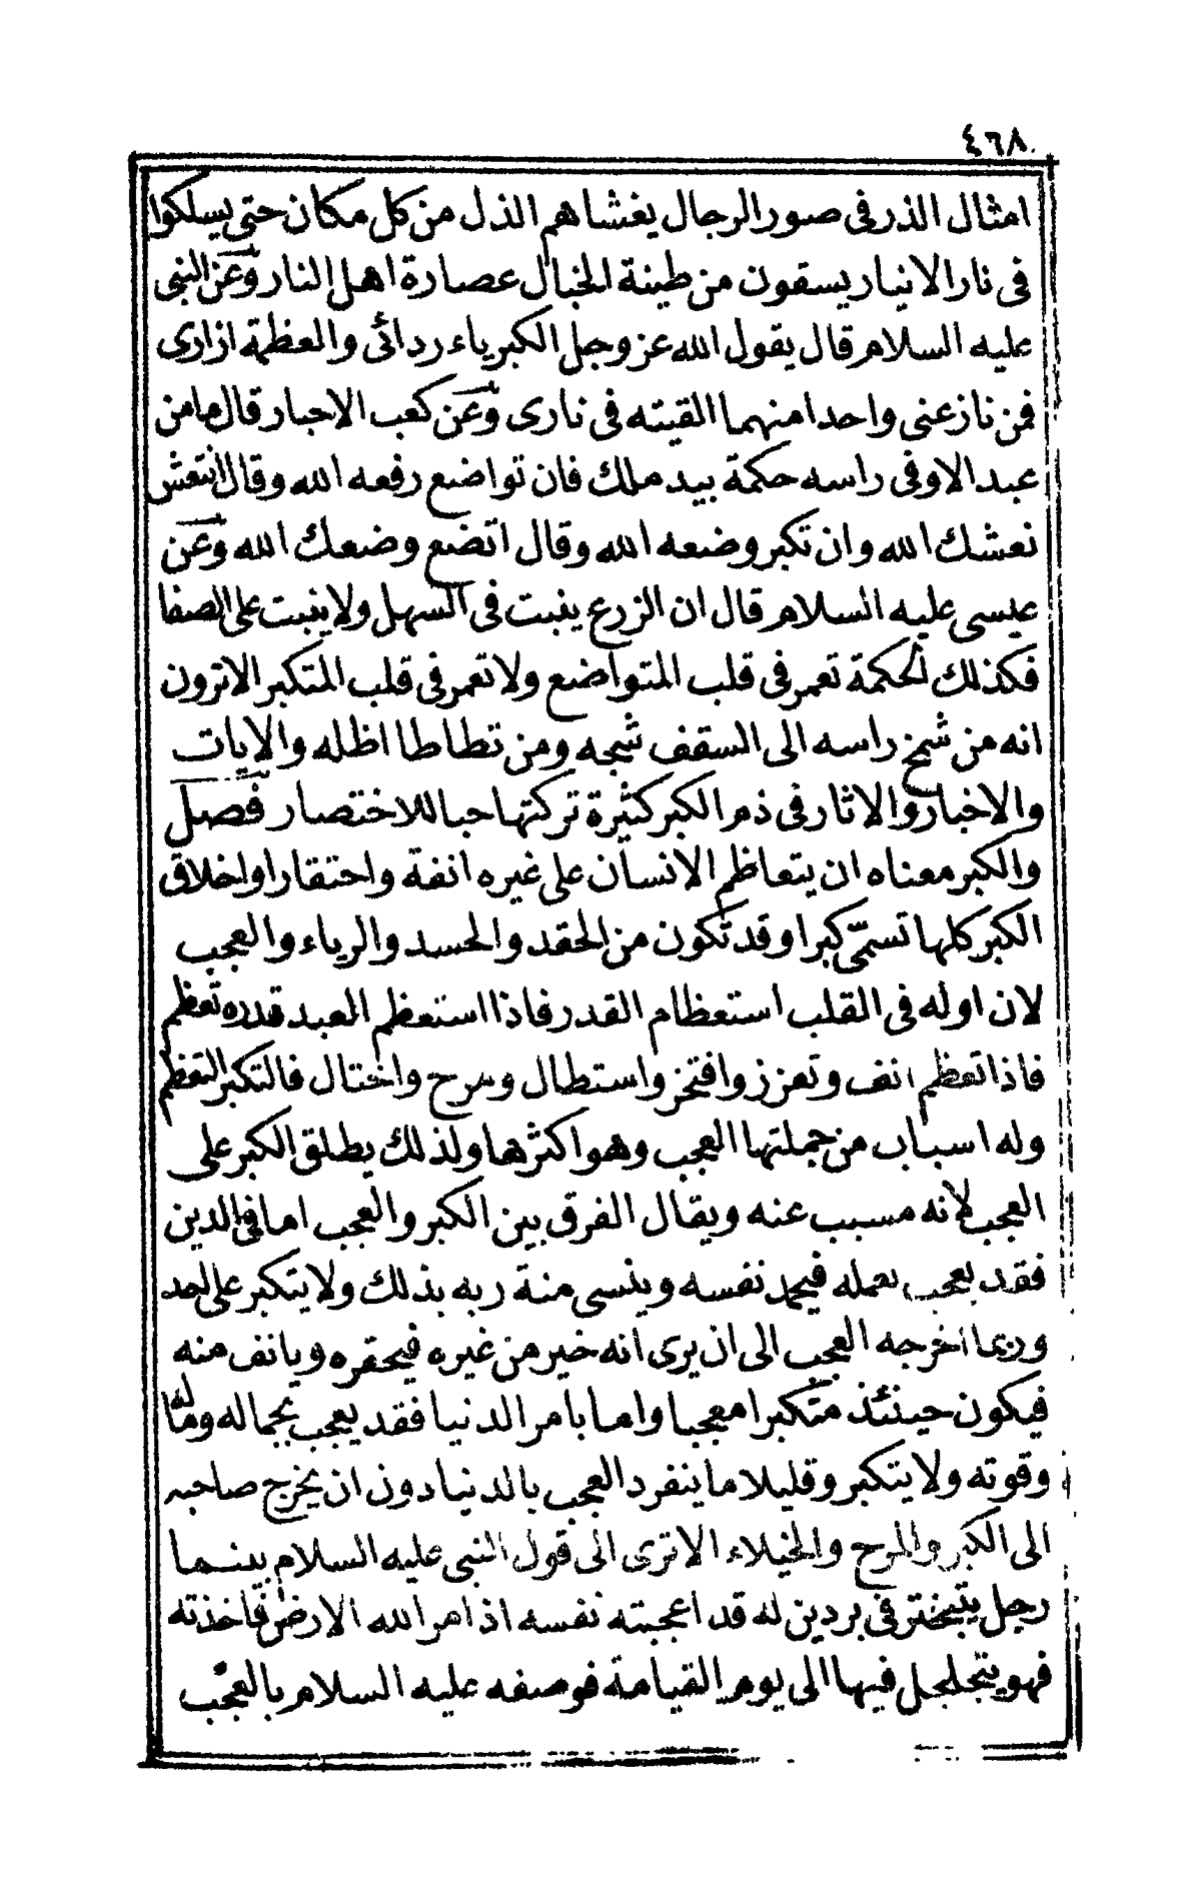 ٤٦٨
امثال الذر فى صور الرجال يغشاهم الذل من كل مكان حتى يسلكوا
فى نار الانيار يسقون من طينة الخبال عصارة اهل النار وعن النبى
عليه السلام قال يقول الله عز وجل الكبرياء ردائى والعظمة ازارى
فمن نازعنى واحدا منهما القيته فى نارى وعن كعب الاحبار قال ما من
عبد الا وفى راسه حكمة بيد ملك فان تواضع رفعه الله وقال انتعش
نعشك الله وان تكبر وضعه الله وقال اتضع وضعك الله وعن
عيسى عليه السلام قال ان الزرع ينبت فى السهل ولا ينبت على الصفا
فكذلك الحكمة تعمر فى قلب المتواضع ولا تعمر فى قلب المتكبر الا ترون
انه من شمخ راسه الى السقف شجه ومن تطاطا اظله والايات
والاخبار والاثار فى ذم الكبر كثيرة تركتها حبا للاختصار فصل
والكبر معناه ان يتعاظم الانسان على غيره انفة واحتقارا واخلاق
الكبر كلها تسمّى كبرا وقد تكون من الحقد والحسد والرياء والعجب
لان اوله فى القلب استعظام القدر فاذا استعظم العبد قدره تعظم
فاذا تعظم انف وتعزز وافتخر واستطال ومرح واختال فالتكبر التعظم
وله اسباب من جملتها العجب وهو اكثرها ولذلك يطلق الكبر على
العجب لانه مسبب عنه ويقال الفرق بين الكبر والعجب اما فى الدين
فقد يعجب بعمله فيحمد نفسه وينسى منة ربه بذلك ولا يتكبر على احد
وربما اخرجه العجب الى ان يرى انه خير من غيره فيحقره ويانف منه
فيكون حينئذ متكبرا معجبا واما بامر الدنيا فقد يعجب بجماله وماله
وقوته ولا يتكبر وقليلا ما ينفرد العجب بالدنيا دون ان يخرج صاحبه
الى الكبر والمرح والخيلاء الا ترى الى قول النبى عليه السلام بينما
رجل يتبختر فى بردين له قد اعجبته نفسه اذ امر الله الارض فاخذته
فهو يتجلجل فيها الى يوم القيامة فوصفه عليه السلام بالعجب